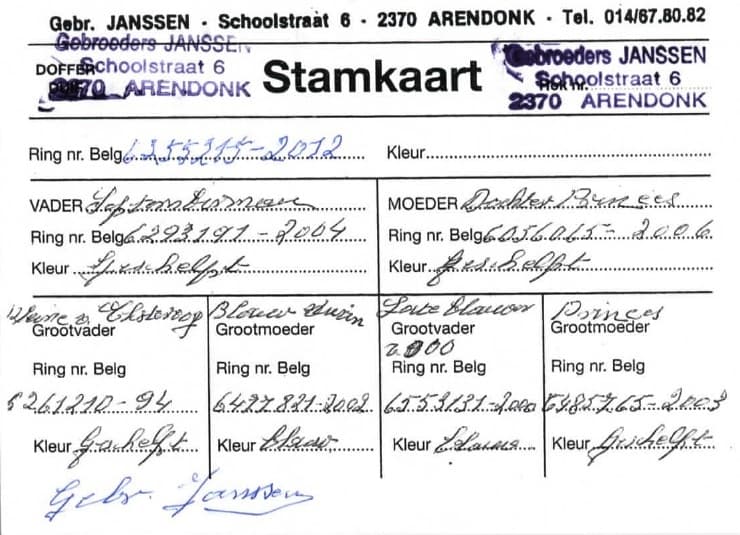 Gebr. JANSSEN - Schoolstraat 6 - 2370 ARENDONK - Tel. 014/67.80.82
Gebroeders JANSSEN
DOFFER Schoolstraat 6
2370 ARENDONK
Stamkaart
Gebroeders JANSSEN
Schoolstraat 6
2370 ARENDONK
Ring nr. Belg 6255215-2012 Kleur
VADER
Ring nr. Belg 6293191-2004
Kleur Geschelpt
MOEDER Dochter Princes
Ring nr. Belg 6056065-2006
Kleur Geschelpt
Grootvader
Ring nr. Belg
6261210-94
Kleur Geschelpt
Blauw Duivin
Grootmoeder
Ring nr. Belg
6427821-2002
Kleur Blauw
Late Blauwe
Grootvader
2000
Ring nr. Belg
6553131-2000
Kleur Blauw
Princes
Grootmoeder
Ring nr. Belg
6485765-2003
Kleur Geschelpt
Gebr. Janssen